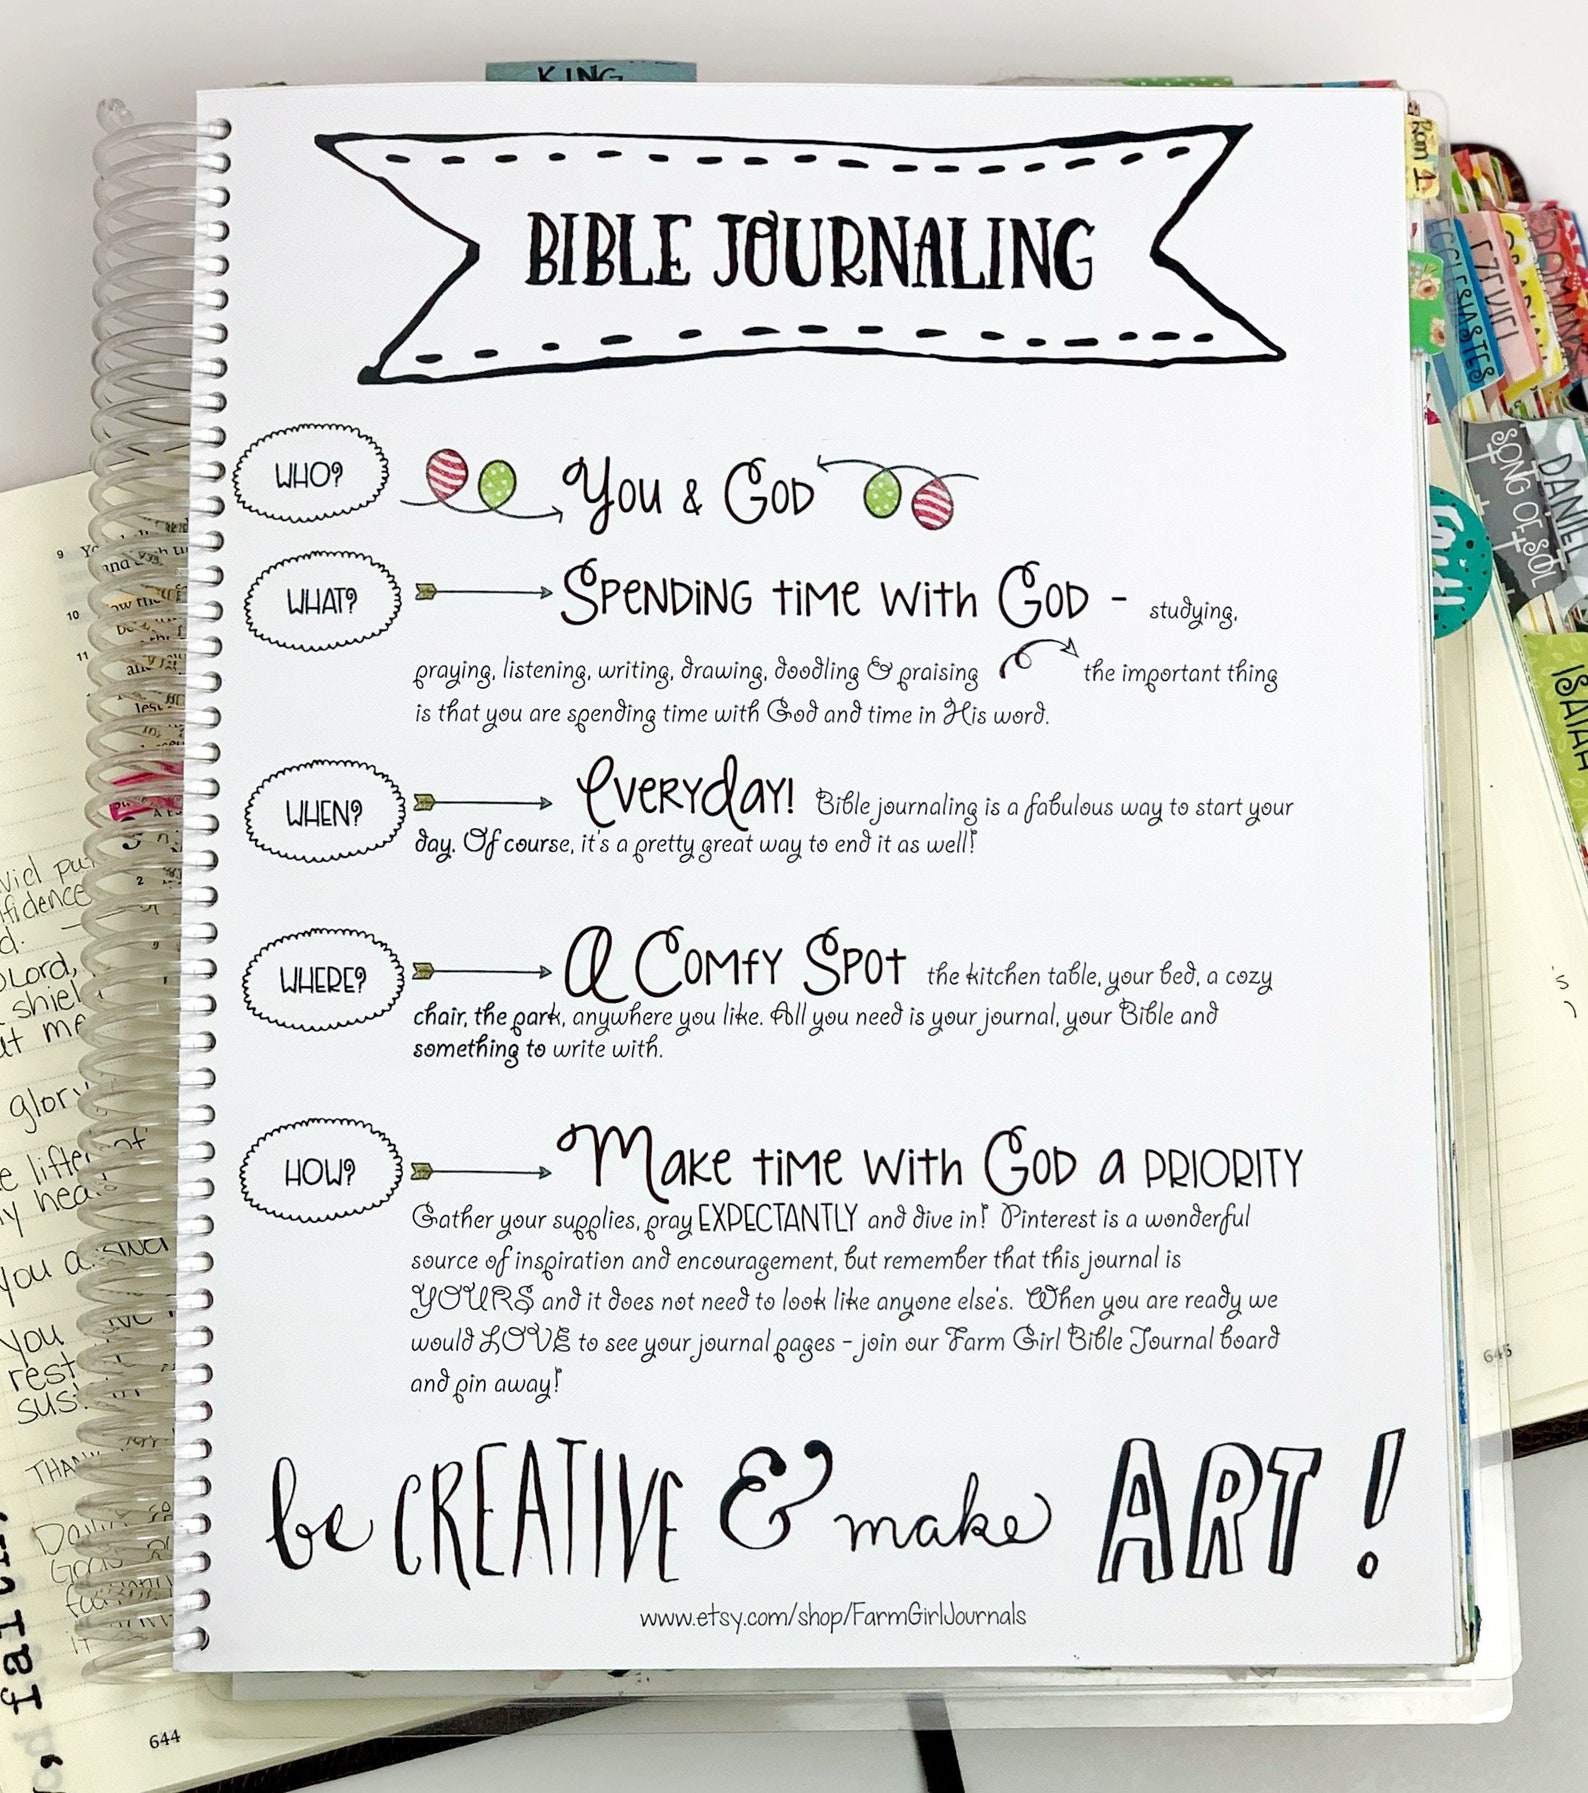 KING
BIBLE JOURNALING
WHO?
You & God
WHAT?
Spending time with God - studying,
praying, listening, writing, drawing, doodling & praising the important thing
is that you are spending time with God and time in His word.
WHEN?
Everyday! Bible journaling is a fabulous way to start your
day. Of course, it's a pretty great way to end it as well!
WHERE?
A Comfy Spot the kitchen table, your bed, a cozy
chair, the park, anywhere you like. All you need is your journal, your Bible and
something to write with.
HOW?
Make time with God a PRIORITY
Gather your supplies, pray EXPECTANTLY and dive in! Pinterest is a wonderful
source of inspiration and encouragement, but remember that this journal is
YOURS and it does not need to look like anyone else's. When you are ready we
would LOVE to see your journal pages - join our Farm Girl Bible Journal board
and pin away!
be CREATIVE & make ART!
www.etsy.com/shop/FarmGirlJournals
ECCLESIASTES
EZEKIEL
ROMANS
SONG OF SOL
DANIEL
ISAIAH
9
10
11
Lord,
shiel
glory
You a
You
rest
644
645